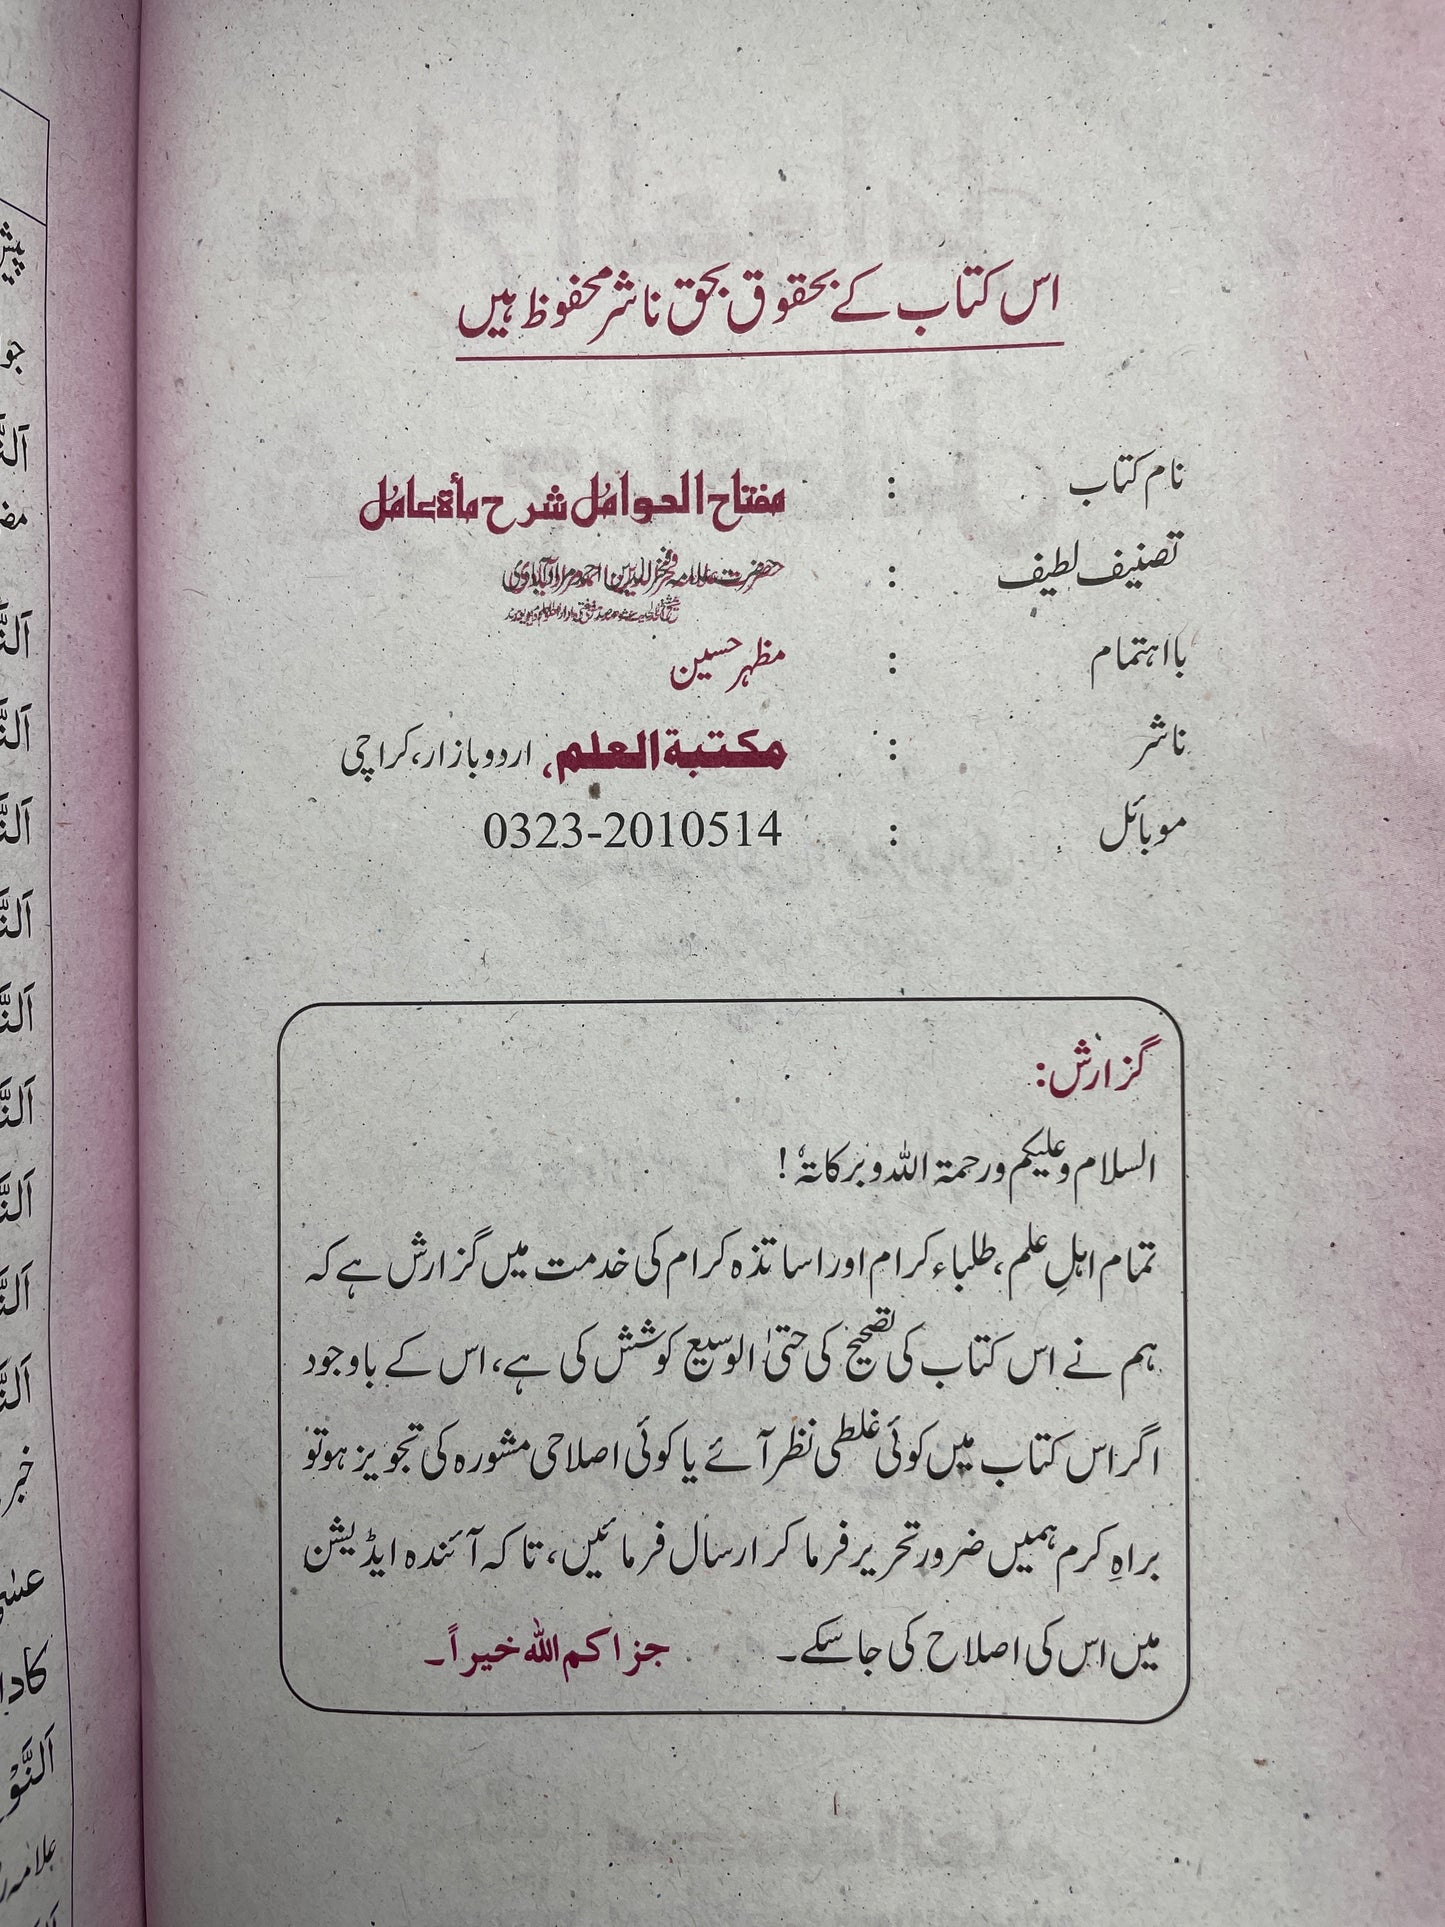 اس کتاب کے بحقوق بحق ناشر محفوظ ہیں
نام کتاب : مفتاح العوامل شرح مأة عامل
تصنیف لطیف : حضرت علامہ فخر الدین احمد مرادآبادی
بااہتمام : مظہر حسین
ناشر : مکتبة العلم، اردو بازار، کراچی
موبائل : 0323-2010514
گزارش:
السلام وعلیکم ورحمۃ اللہ وبرکاتہٗ!
تمام اہلِ علم، طلباء کرام اور اساتذہ کرام کی خدمت میں گزارش ہے کہ
ہم نے اس کتاب کی تصحیح کی حتیٰ الوسیع کوشش کی ہے، اس کے باوجود
اگر اس کتاب میں کوئی غلطی نظر آئے یا کوئی اصلاحی مشورہ کی تجویز ہو تو
براہِ کرم ہمیں ضرور تحریر فرما کر ارسال فرمائیں، تاکہ آئندہ ایڈیشن
میں اس کی اصلاح کی جا سکے۔ جزاکم اللہ خیراً۔